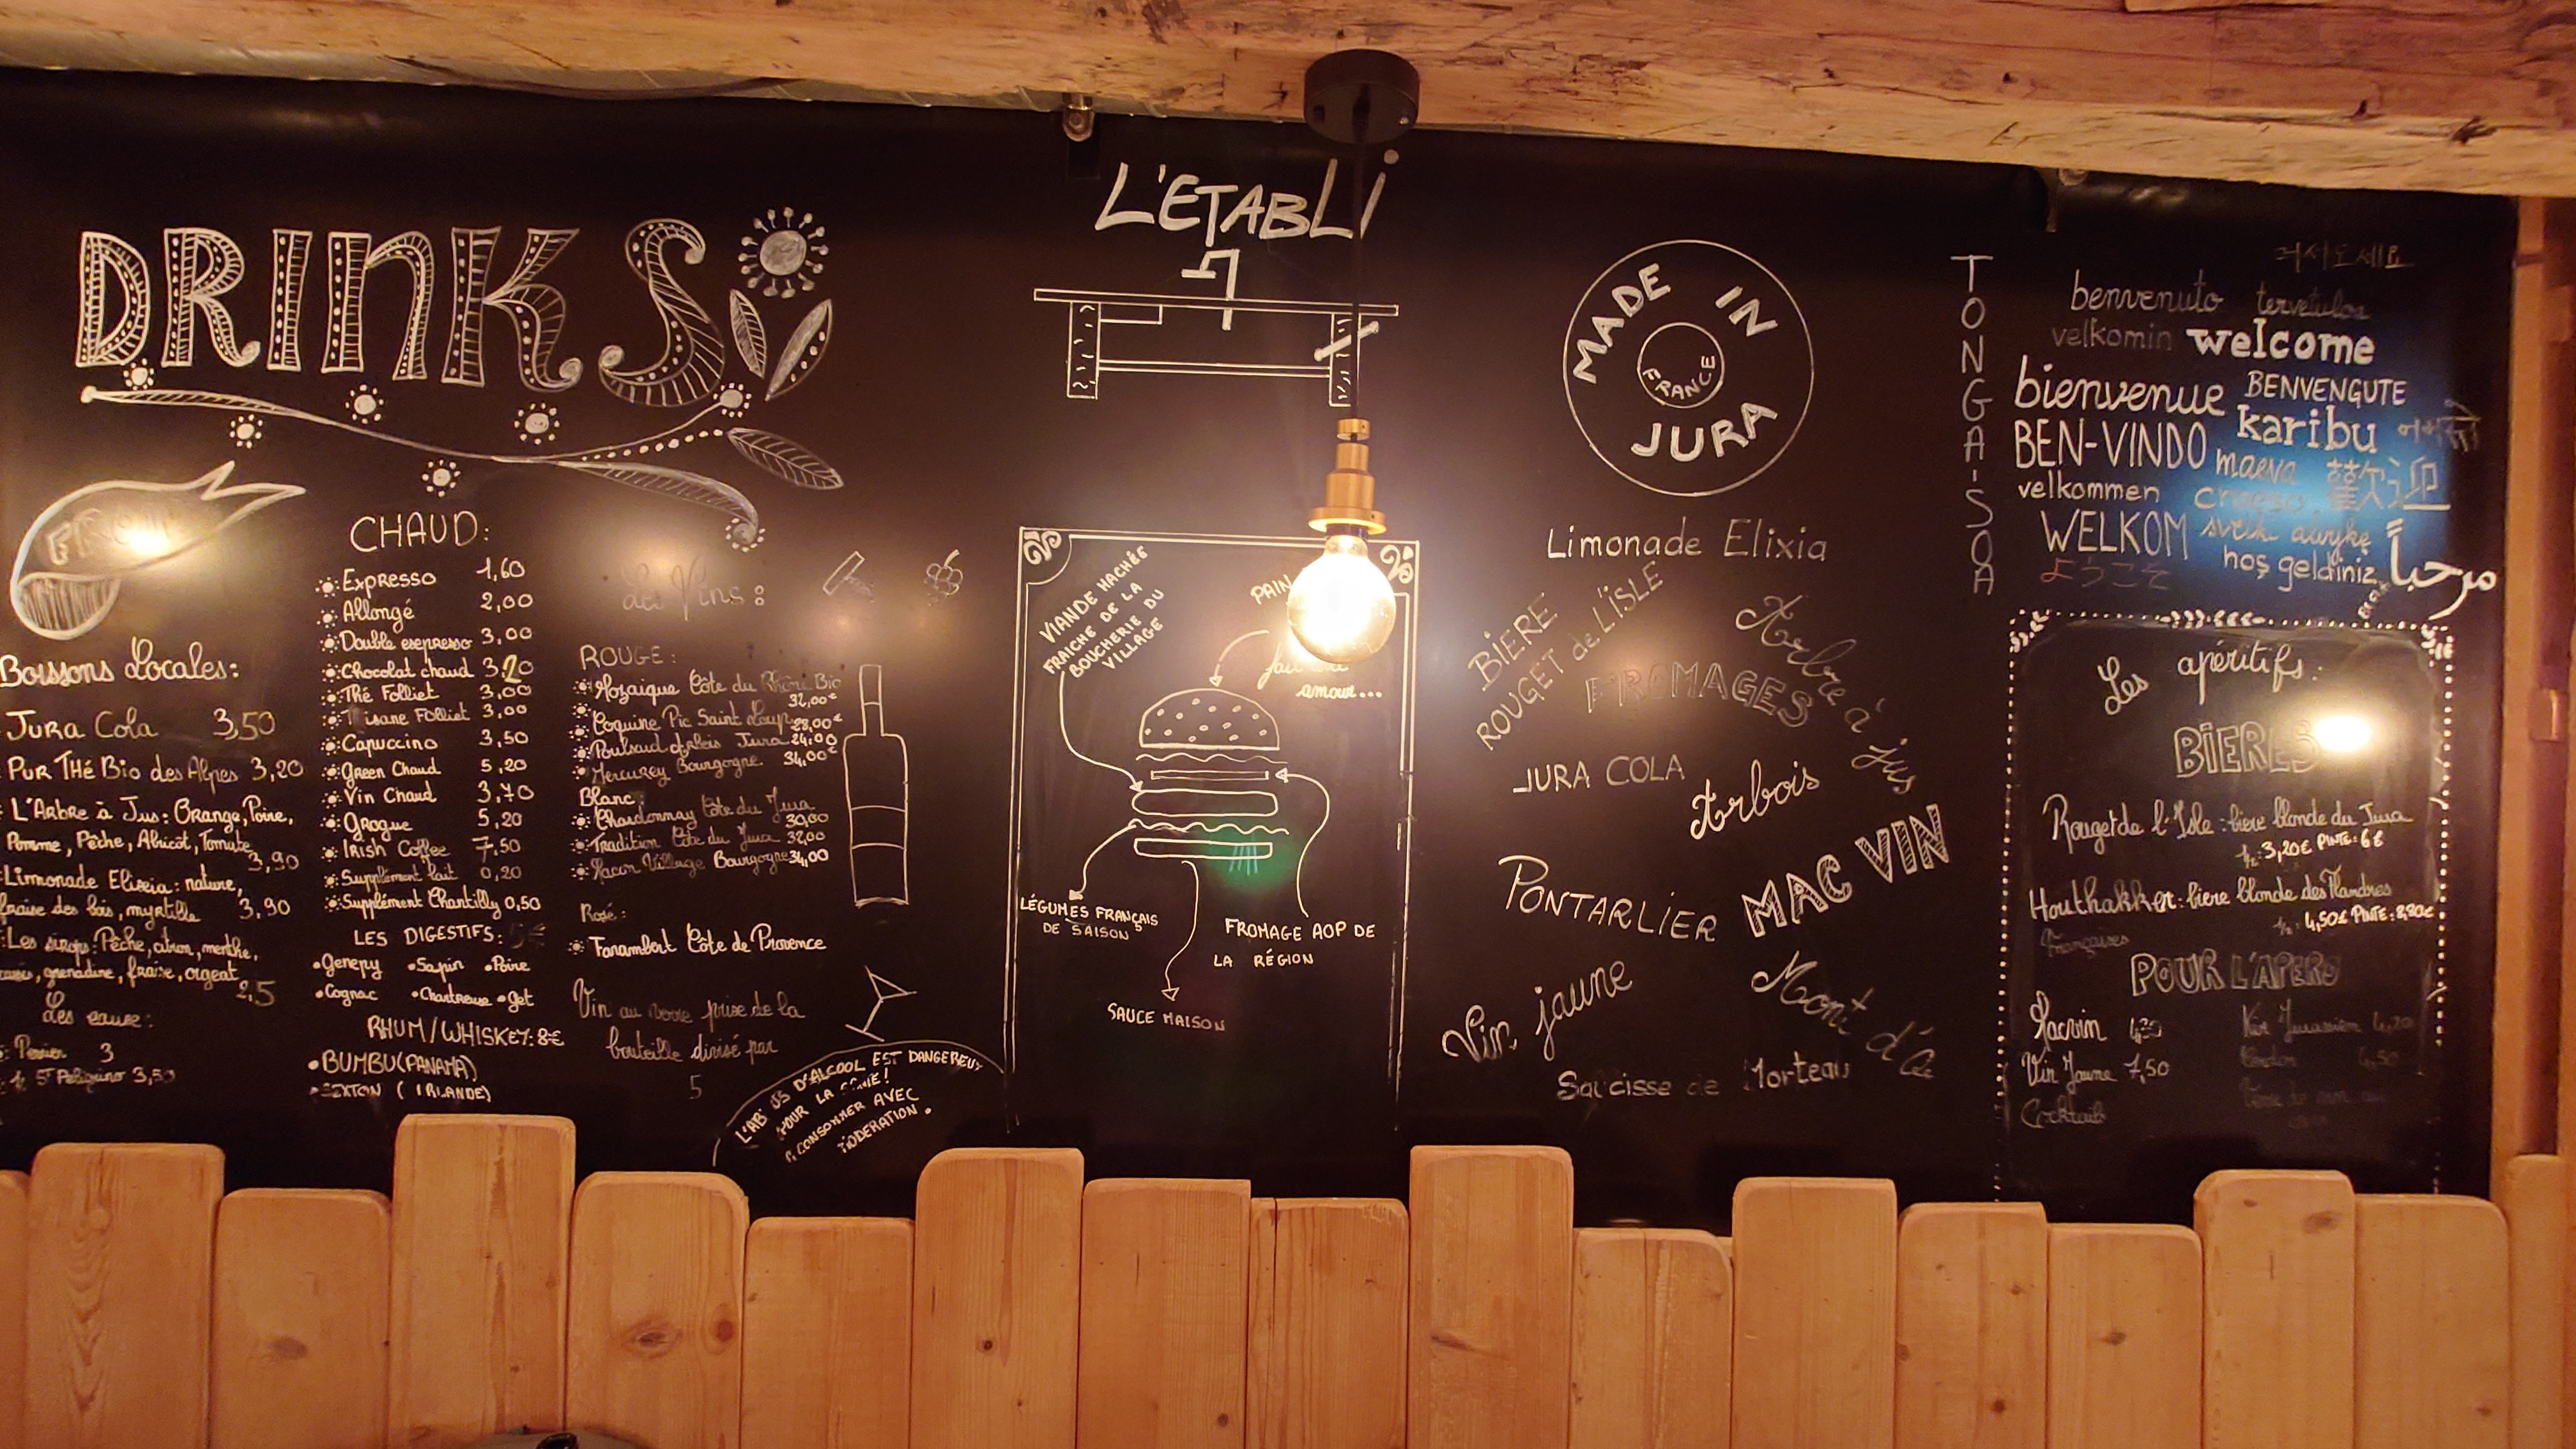 DRINKS
Boissons Locales:
Jura Cola 3,50
Pur Thé Bio des Alpes 3,20
L'Arbre à Jus: Orange, Poire,
Pomme, Pêche, Abricot, Tomate
3,90
Limonade Elixia: nature,
fraise des bois, myrtille 3,90
Les sirops: Pêche, citron, menthe,
cassis, grenadine, fraise, orgeat
2,5
Les eaux:
Perrier 3
3,50
CHAUD:
Expresso 1,60
Allongé 2,00
Double expresso 3,00
Chocolat chaud 3,20
Thé Folliet 3,00
Tisane Folliet 3,00
Capuccino 3,50
Green Chaud 5,20
Vin Chaud 3,70
Grogue 5,20
Irish Coffee 7,50
Supplément lait 0,20
Supplément Chantilly 0,50
LES DIGESTIFS:
Genepy Sapin Poire
Cognac Chartreuse Get
RHUM/WHISKEY: 8€
BUMBU (PANAMA)
SEXTON (IRLANDE)
Les Vins:
ROUGE:
Mozaique Côte du Rhône Bio
32,00€
Coquine Pic Saint Loup 28,00€
Poulsard Arbois Jura 24,00
Mercurey Bourgogne 34,00€
Blanc:
Chardonnay Côte du Jura
30,00
Tradition Côte du Jura 32,00
Macon Village Bourgogne 34,00
Rosé:
Côte de Provence
Vin au verre prise de la
bouteille divisé par
5
L'ABUS D'ALCOOL EST DANGEREUX
POUR LA
CONSOMMER AVEC
MODERATION.
L'ETABLI
VIANDE HACHÉE
FRAICHE DE LA
BOUCHERIE DU
VILLAGE
PAIN
fait
amour...
LÉGUMES FRANÇAIS
DE SAISON
FROMAGE AOP DE
LA RÉGION
SAUCE MAISON
MADE IN
FRANCE
JURA
Limonade Elixia
BIERE
ROUGET de L'ISLE
Arbre à jus
FROMAGES
JURA COLA
Arbois
PONTARLIER
MAC VIN
Vin jaune
Mont d'Or
Saucisse de Morteau
TONGA-SOA
어서오세요
benvenuto tervetuloa
velkomin welcome
bienvenue BENVENGUTE
BEN-VINDO karibu
maeva
velkommen croeso 歡迎
WELKOM
hoş geldiniz
ようこそ
مرحباً
Les apéritifs:
BIERES
Rouget de l'Isle: biere blonde du Jura
1/2: 3,20€ PINTE: 6€
Houthakker: biere blonde des Flandres
Françaises
1/2: 4,50€ PINTE: 8,80€
POUR L'APERO
Macvin
Vin Jaune 7,50
Cocktails